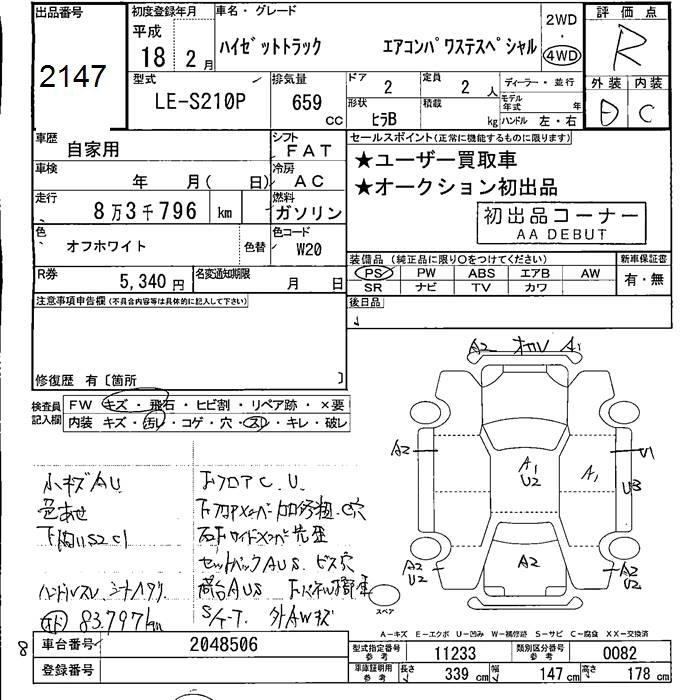 出品番号
2147
初度登録年月
平成
18 2月
車名・グレード
ハイゼットトラック エアコンパワステスペシャル
2WD
・
4WD
評価点
R
外装 内装
D C
型式
LE-S210P
排気量
659
CC
ドア
2
定員
2 人
ディーラー・並行
形状
ヒラB
積載
kg
モデル年式
年
ハンドル 左・右
車歴
自家用
シフト
FAT
車検
年 月( 日)
冷房
AC
走行
8万3千796 km
燃料
ガソリン
色
オフホワイト
色替
色コード
W20
R券
5,340 円
名変通知期限
月 日
セールスポイント(正常に機能するものに限ります)
★ユーザー買取車
★オークション初出品
初出品コーナー
AA DEBUT
装備品(純正品に限り○をつけてください)
新車保証書
PS PW ABS エアB AW
有・無
SR ナビ TV カワ
後日品
注意事項申告欄(不具合内容等は具体的に記入して下さい)
修復歴 有〔箇所 〕
検査員記入欄
FW キズ・飛石・ヒビ割・リペア跡・×要
内装 キズ・汚レ・コゲ・穴・スレ・キレ・破レ
小キズAU
色あせ
下廻りS2C1
ハンドルスレ シートハタリ
83.797km
下フロアC.U.
セットバックAUS ビス穴
荷台AUS
S/T-T. 外AWキズ
A2 A1
A2
A1
U2
A1
U1
U3
A2
U2
A2
A2
U2
スペア
A-キズ E-エクボ U-凹み W-補修跡 S-サビ C-腐食 XX-交換済
車台番号
2048506
登録番号
型式指定番号
参考
11233
類別区分番号
参考
0082
車庫証明用
参考
長さ 339 cm 幅 147 cm 高さ 178 cm